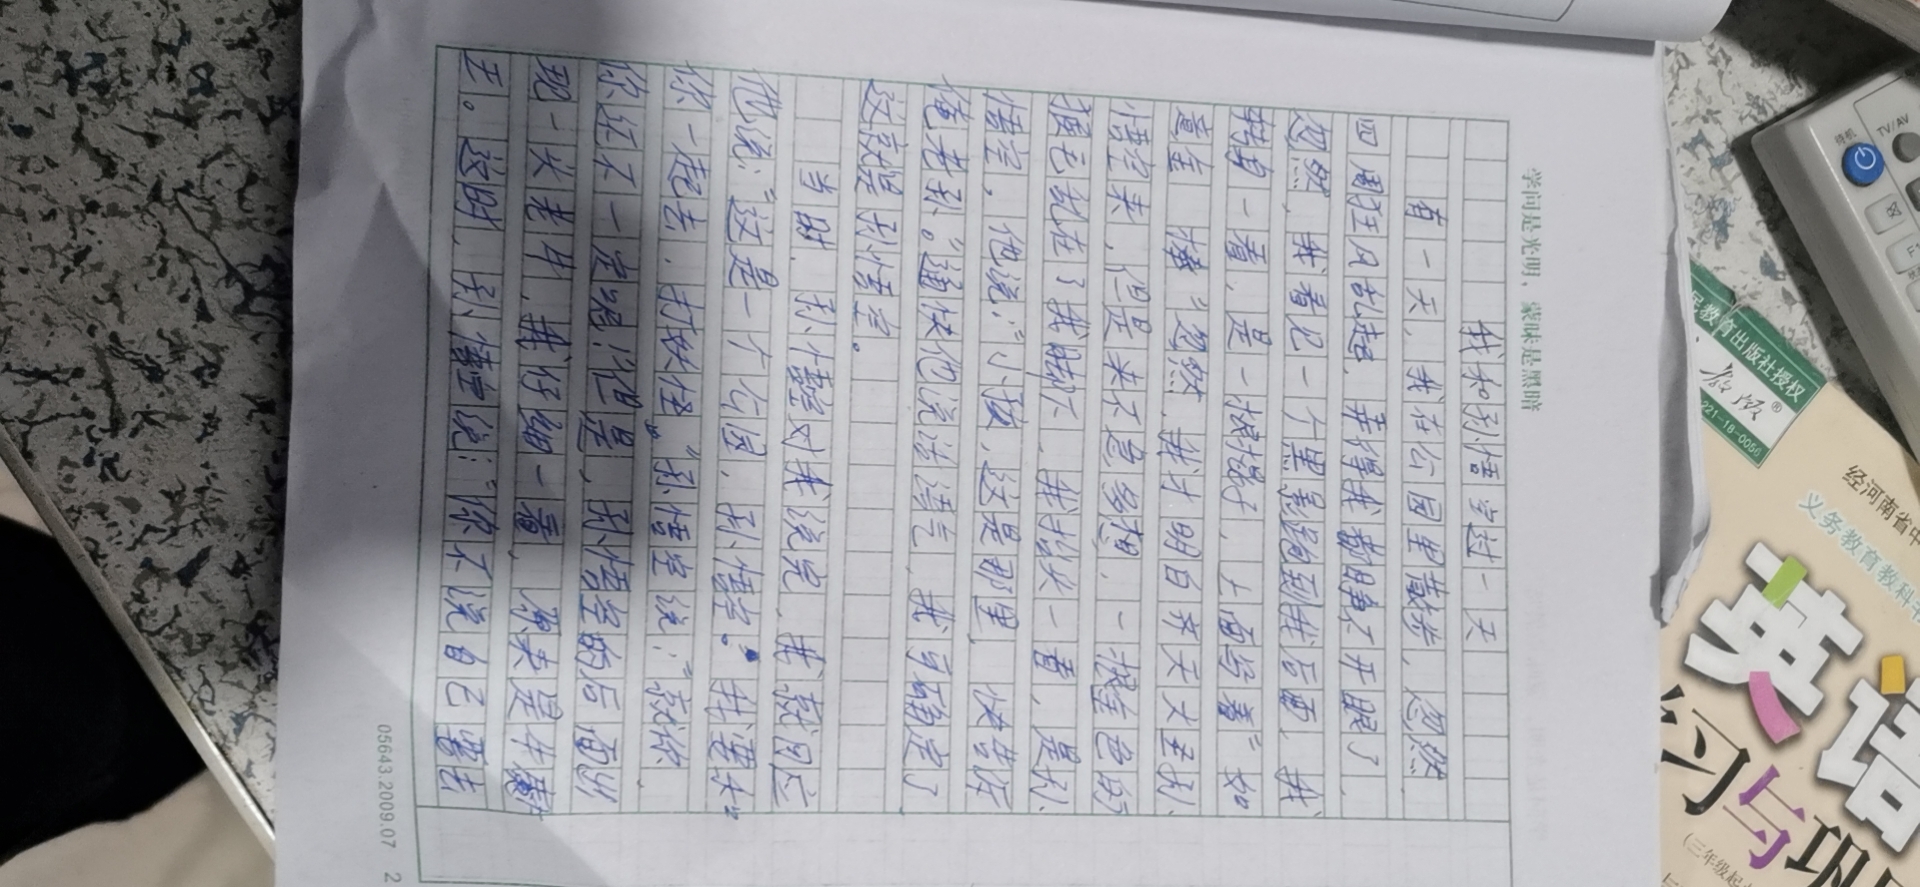 学问是光明，蒙昧是黑暗
我和孙悟空过一天
有一天，我在公园里散步，忽然
四周狂风乱起，弄得我都睁不开眼了，
忽然，我看见一个黑影跑到我后面，我
转身一看，是一根棍子，上面写着“如
意金 棒”忽然，我才明白齐天大圣孙
悟空来，但是来不急多想，一根金色的
猴毛就在了我脚下，我抬头一看，是孙
悟空，他说：“小孩，这是那里，快告诉
俺老孙。”通快他说话清气，我了确定了
这就是孙悟空。
当时，孙悟空对我说完，我就回应
他说：“这是一个公园，孙悟空。”我要和“
你一起去，打妖怪。”孙悟空说：“就你，
你还不一定呢！但是，孙悟空的后面出
现一头老牛，我仔细一看，原来是牛魔
王。这时，孙悟空说：“你不说自己要去
05643.2009.07 2
民教育出版社授权
教版®
221-18-0056
经河南省中
义务教育教科书
英语
学习与巩
（三年级起
待机
TV/AV